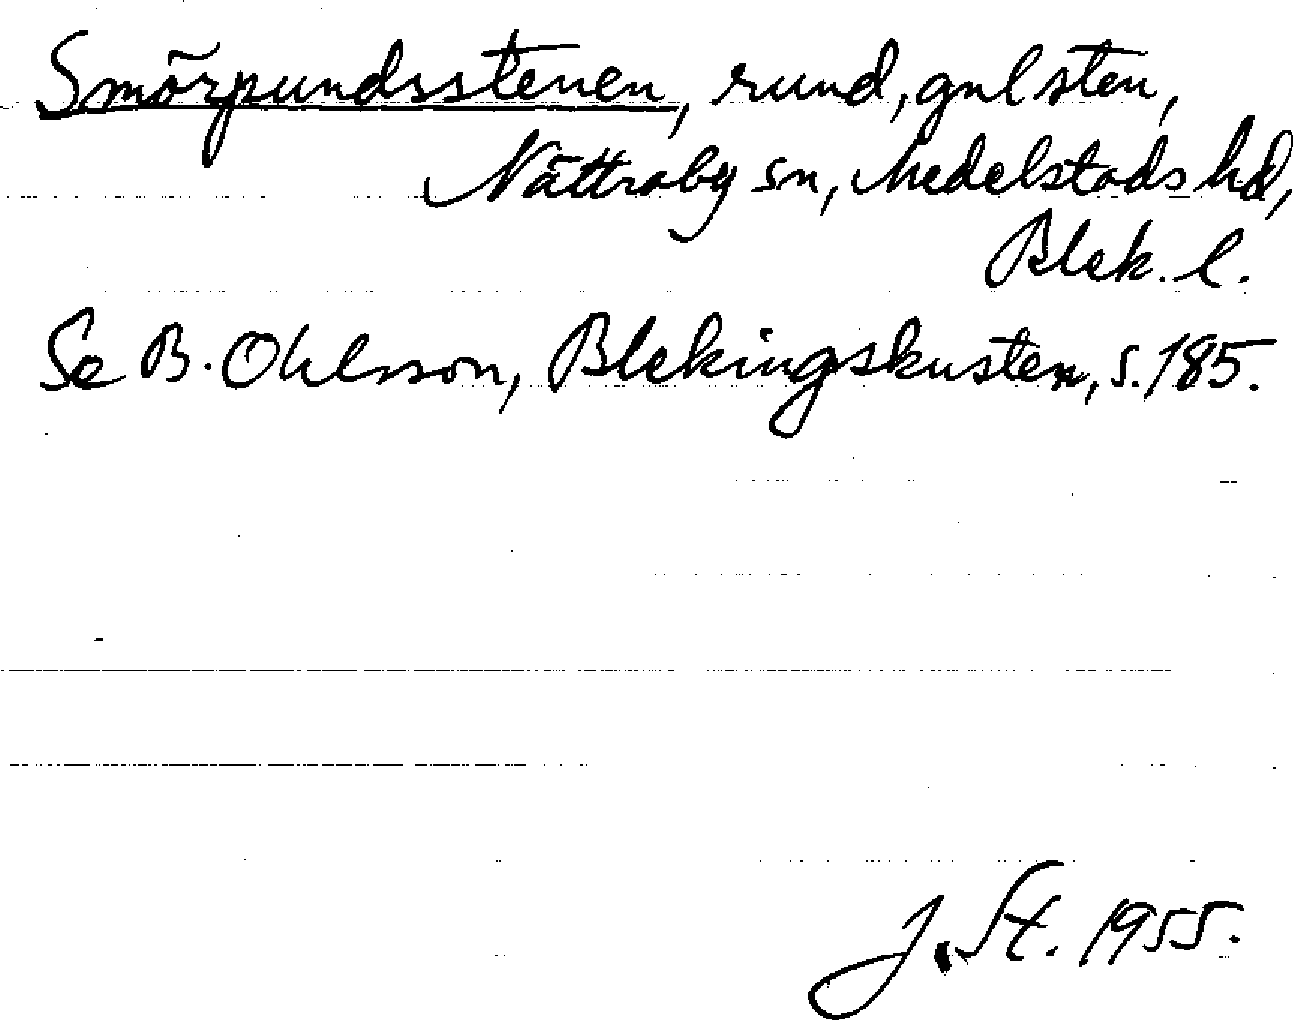 Smörpundsstenen, rund, gul sten,
Nättraby sn, Medelstads hd,
Blek. l.
Se B. Ohlsson, Blekingskusten, s. 185.
J. St. 1955.